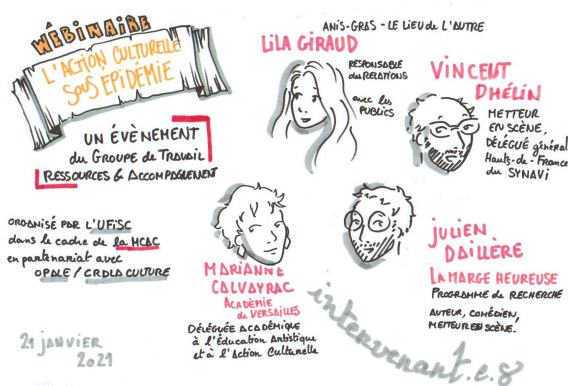 WÉBINAIRE
L'ACTION CULTURELLE
SOUS ÉPIDÉMIE
UN ÉVÈNEMENT
du GROUPE de TRAVAIL
RESSOURCES & ACCOMPAGNEMENT
ORGANISÉ PAR L'UFISC
dans le cadre de la MCAC
en partenariat avec
OPALE / CRDLA CULTURE
21 JANVIER
2021
ANIS-GRAS - LE LIEU DE L'AUTRE
LILA GIRAUD
RESPONSABLE
des RELATIONS
avec les
PUBLICS
VINCENT
DHÉLIN
METTEUR
EN SCÈNE,
DÉLÉGUÉ général
Hauts-de-France
du SYNAVI
MARIANNE
CALVAYRAC
ACADÉMIE
de VERSAILLES
DÉLÉGUÉE ACADÉMIQUE
à l'Éducation Artistique
et à l'Action Culturelle
JULIEN
DAILLÈRE
LA MARGE HEUREUSE
PROGRAMME de RECHERCHE
AUTEUR, COMÉDIEN,
METTEUR EN SCÈNE.
intervenant.e.s